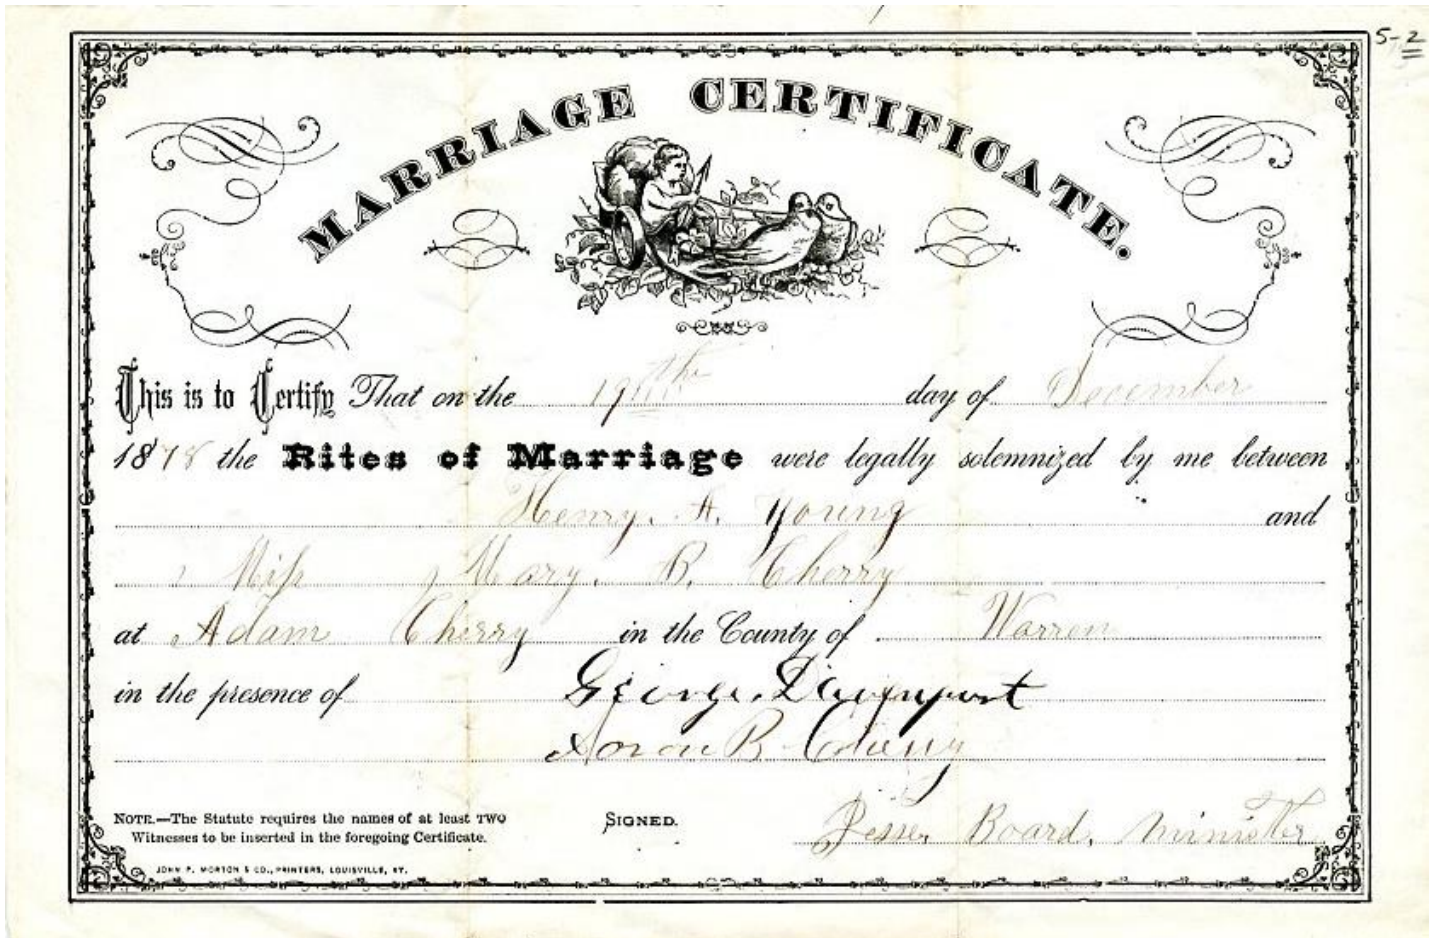 5-2
MARRIAGE CERTIFICATE.
This is to Certify That on the 19th day of December
1878 the Rites of Marriage were legally solemnized by me between
Henry. A. Young and
Miss Mary. B. Cherry
at Adam Cherry in the County of Warren
in the presence of George. Davenport
B. Cherry
NOTE.—The Statute requires the names of at least TWO
Witnesses to be inserted in the foregoing Certificate.
SIGNED.
Jesse, Board, Minister
JOHN P. MORTON & CO., PRINTERS, LOUISVILLE, KY.